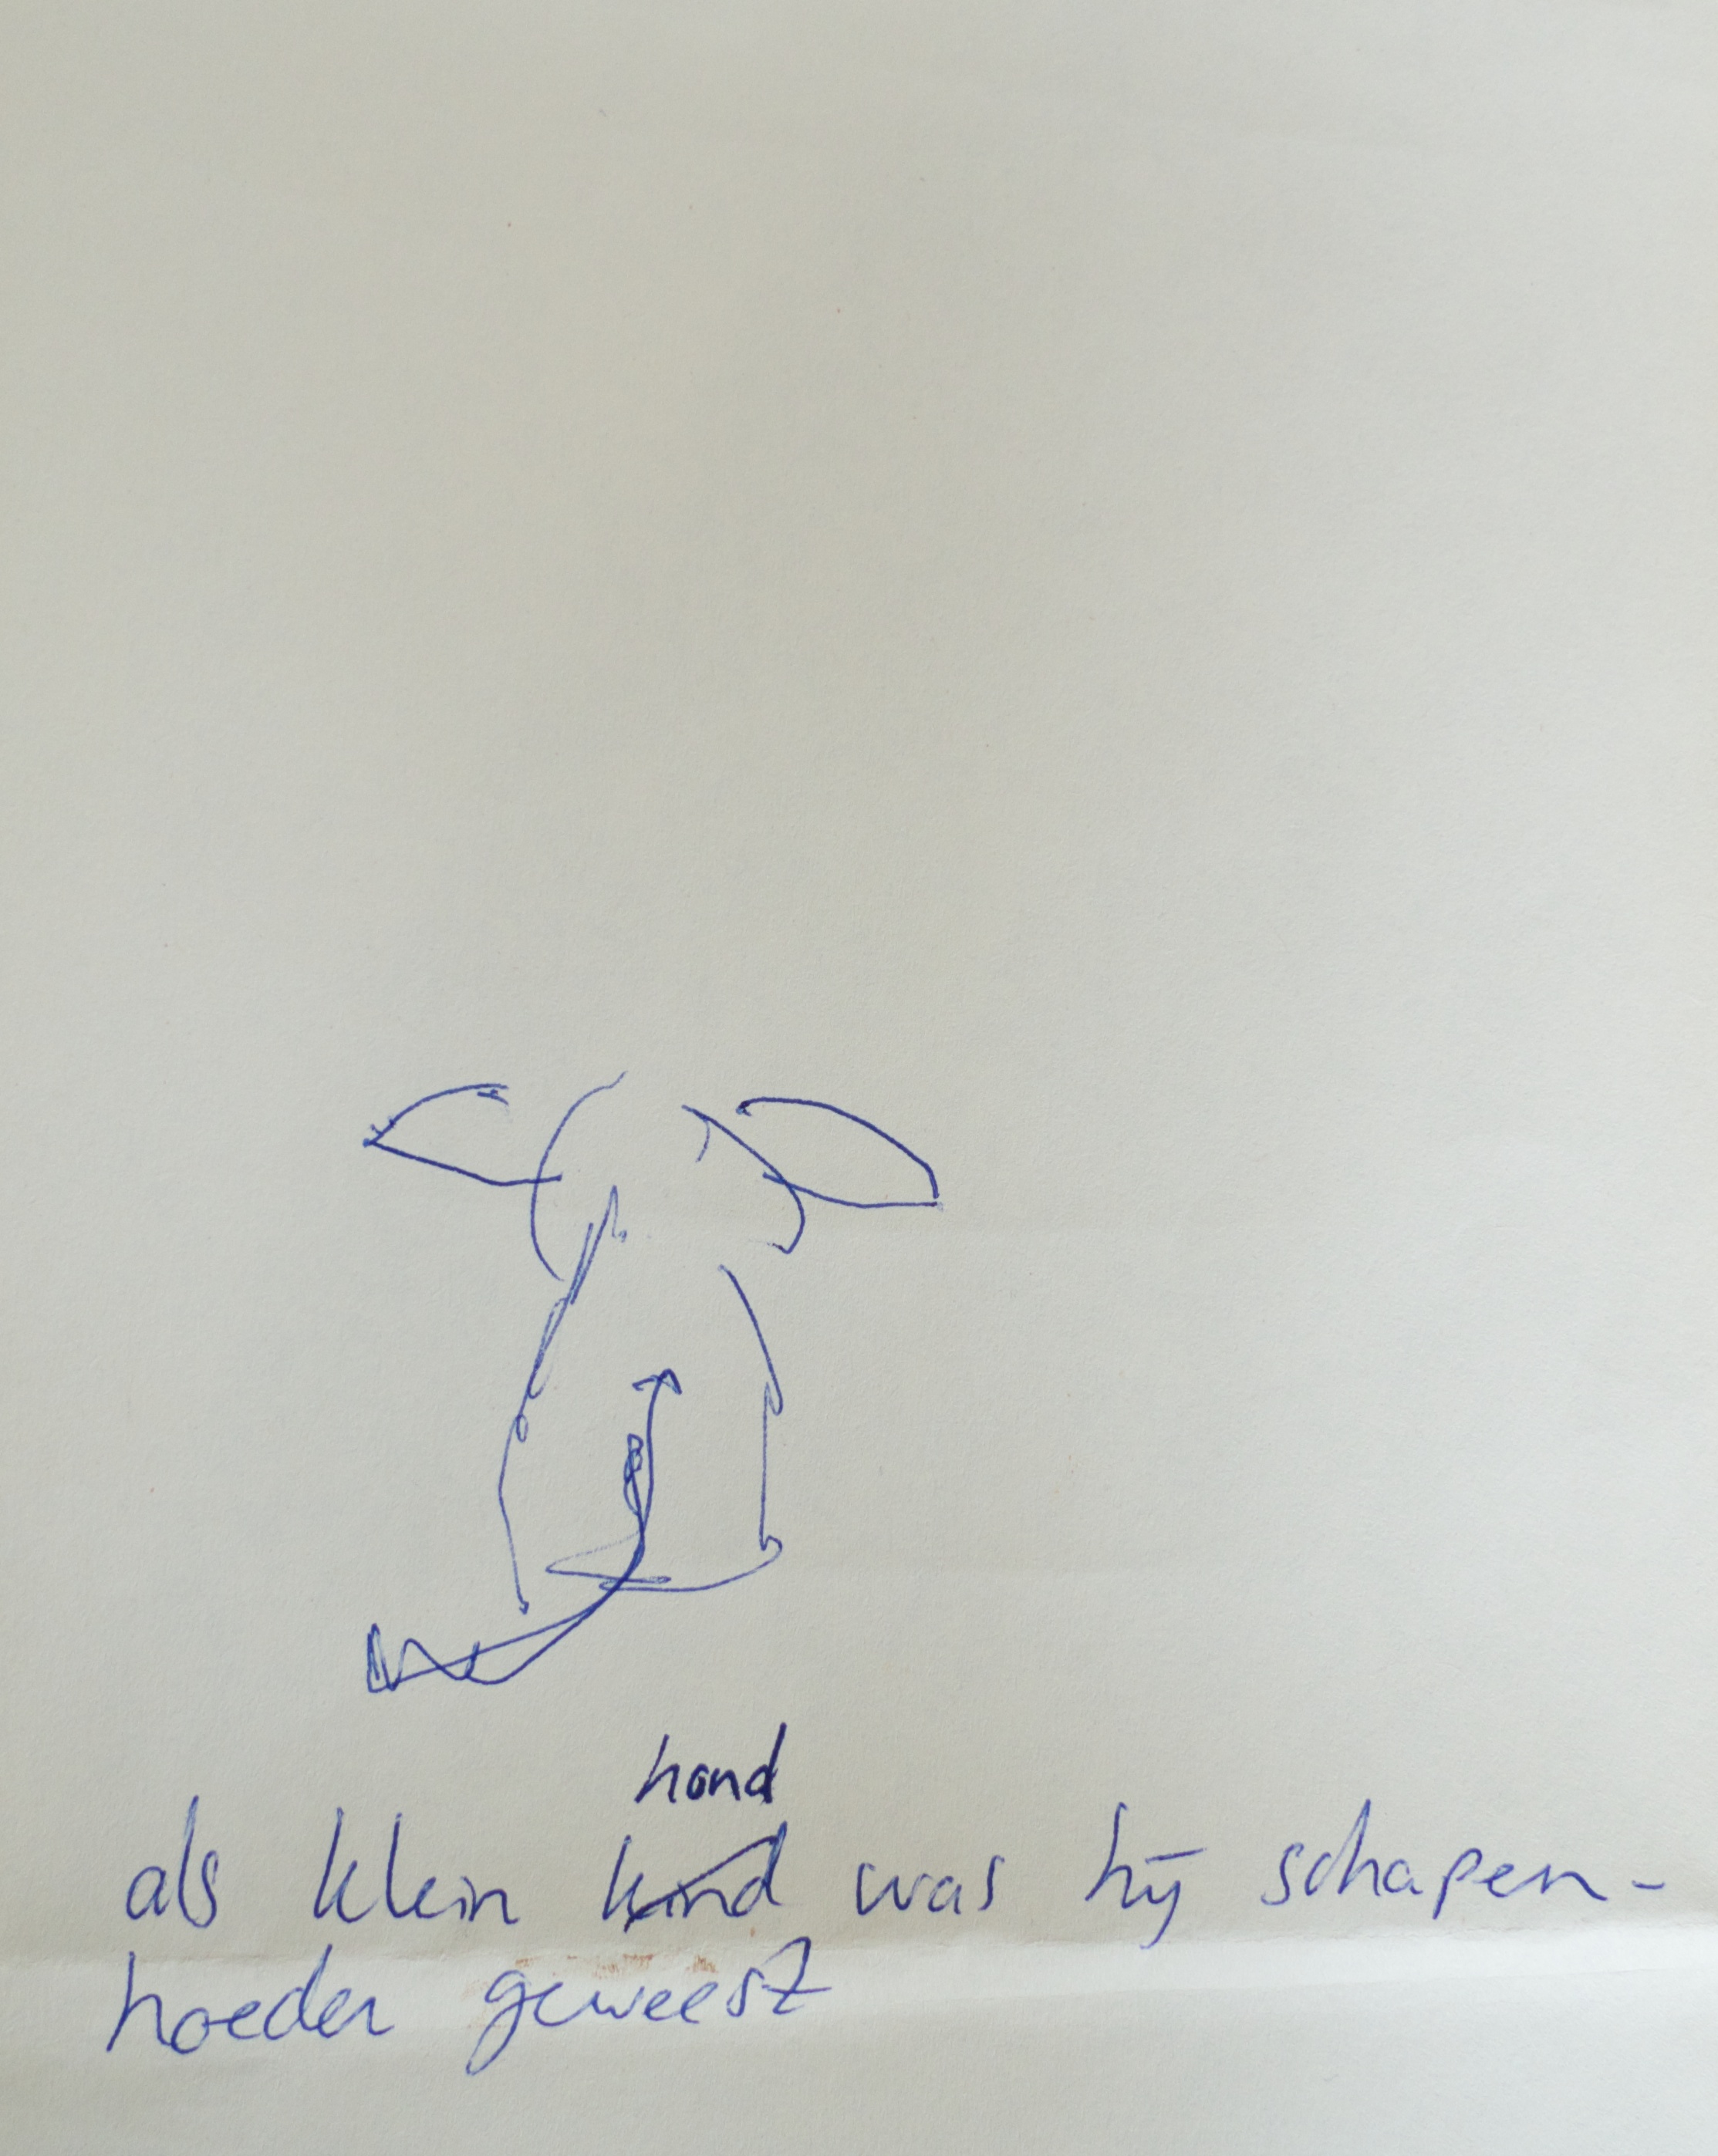 hond
als klein kind was hij schapen-
hoeder geweest